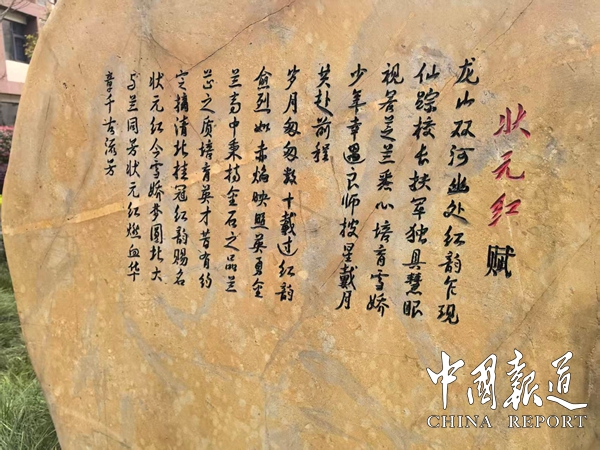 状元红 赋
龙山双河幽处红韵乍现
仙踪校长扶军独具慧眼
视若芝兰悉心培育雪娇
少年幸遇良师披星戴月
共赴前程
岁月匆匆数十载过红韵
愈烈如赤焰映照英夏金
兰高中秉持金石之品兰
芷之质培育英才昔有约
定摘清北桂冠红韵赐名
状元红今雪娇梦圆北大
与兰同芳状元红燃血华
章千古流芳
中国报道
CHINA REPORT